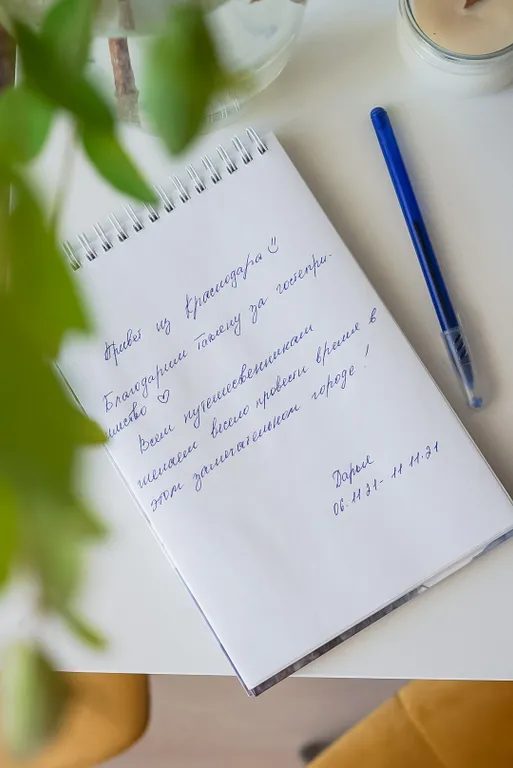 Привет из Краснодара
Благодарим Татьяну за гостепри-
имство ♡
Всем путешественникам
желаем весело провести время в
этом замечательном городе!
Дарья
06.11.21- 11.11.21